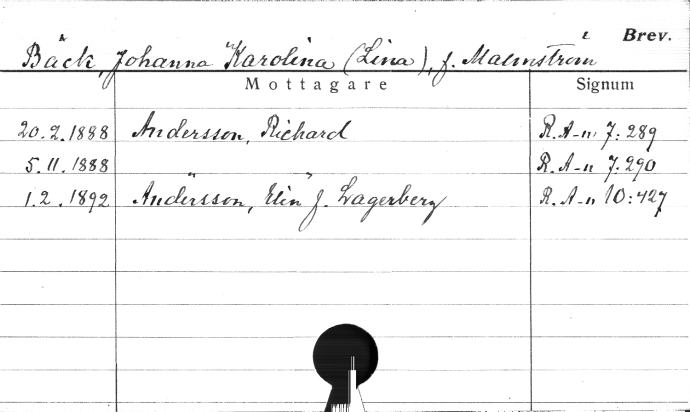 Brev.
Bäck, Johanna Karolina (Lina), f. Malmström
Mottagare Signum
20.2.1888 Andersson, Richard R. A-n 7:289
5.11.1888 R. A-n 7:290
1.2.1892 Andersson, Elin f. Lagerberg R. A-n 10:427